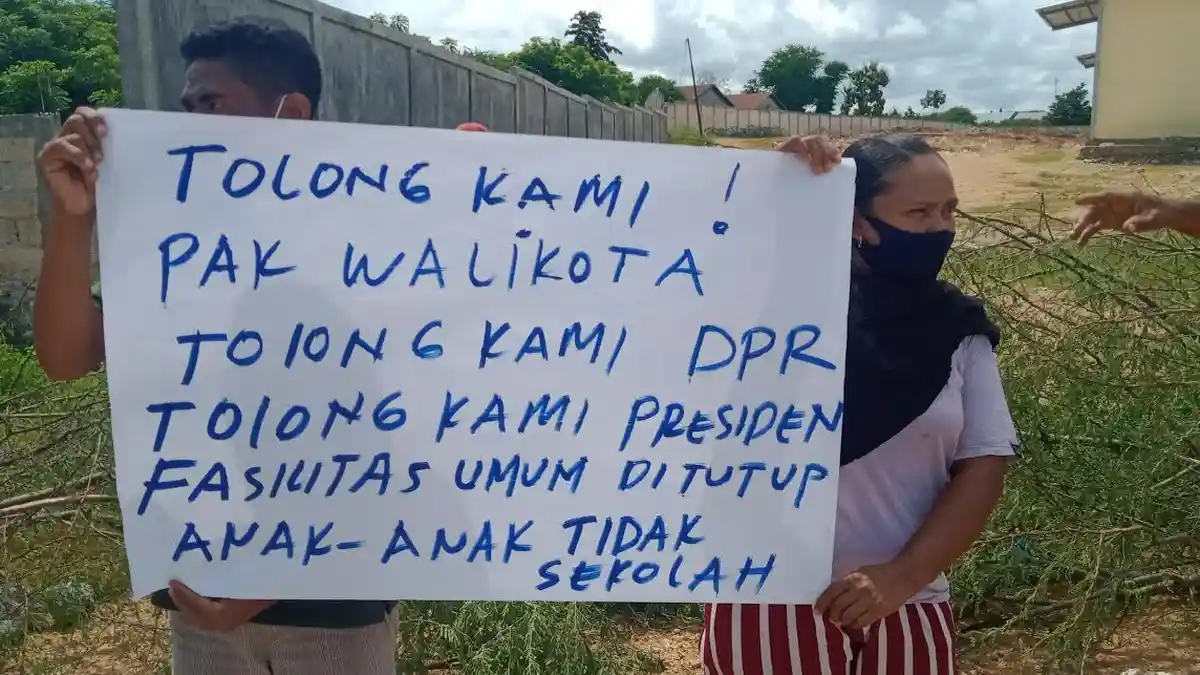 TOLONG KAMI !
PAK WALIKOTA
TOlONG KAMI DPR
TOlONG KAMI PRESIDEN
FASILITAS UMUM DITUTUP
ANAK-ANAK TIDAK
SEKOLAH